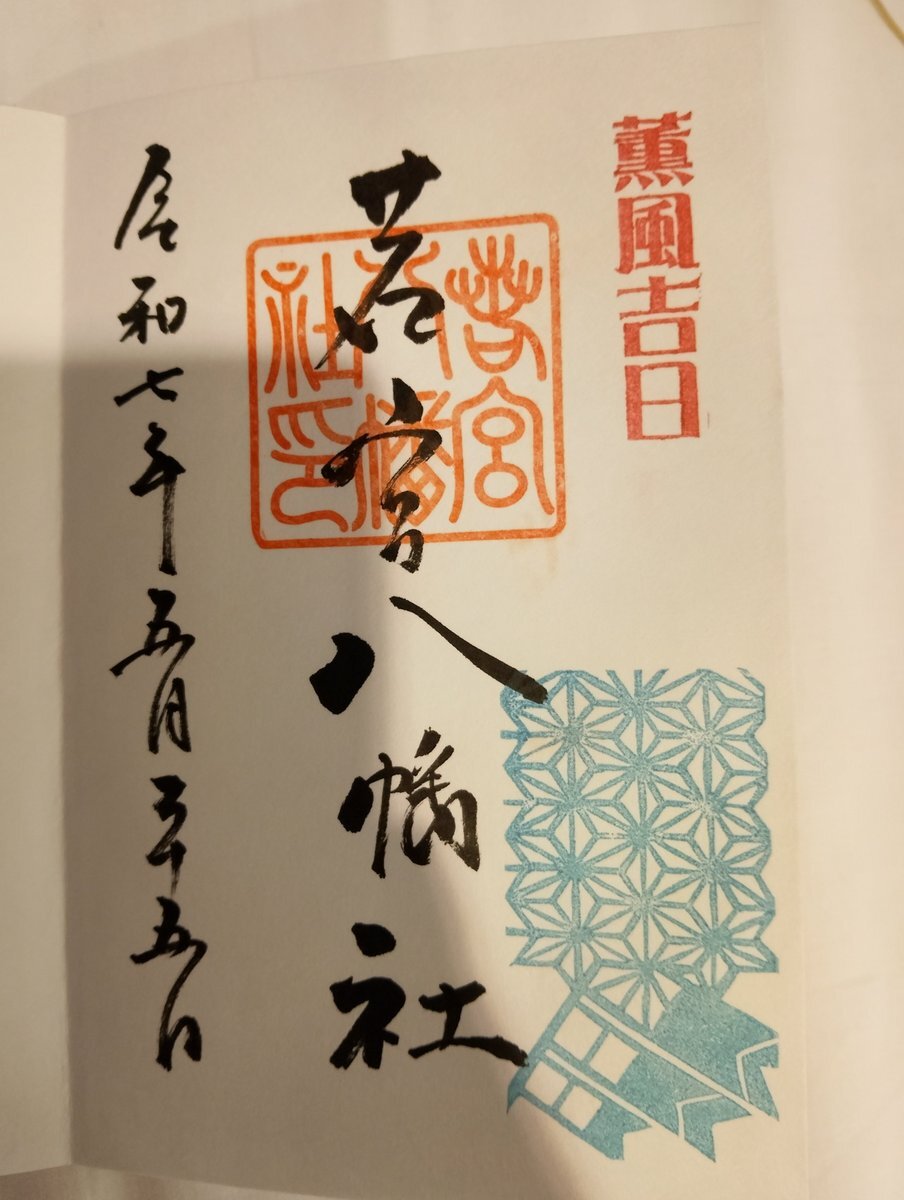 薫風吉日
若宮
八幡
社印
若宮八幡社
令和七年五月二十五日